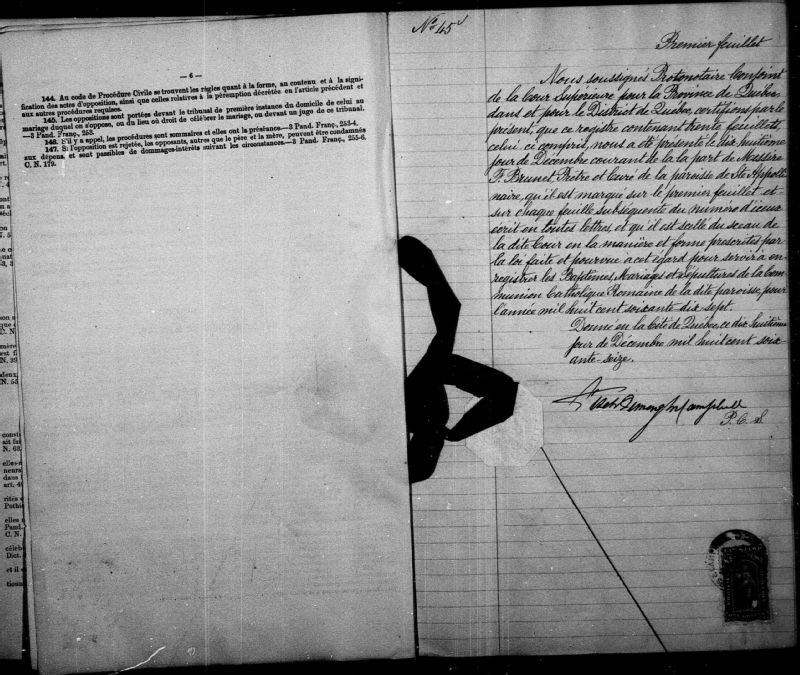 — 6 —
144. Au code de Procédure Civile se trouvent les règles quant à la forme, au contenu et à la signi-
fication des actes d'opposition, ainsi que celles relatives à la péremption décrétée en l'article précédent et
aux autres procédures requises.
145. Les oppositions sont portées devant le tribunal de première instance du domicile de celui au
mariage duquel on s'oppose, ou du lieu où droit de célébrer le mariage, ou devant un juge de ce tribunal.
—3 Pand. Franç., 253.
146. S'il y a appel, les procédures sont sommaires et elles ont la préséance.—3 Pand. Franç., 253-4.
147. Si l'opposition est rejetée, les opposants, autres que le père et la mère, peuvent être condamnés
aux dépens, et sont passibles de dommages-intérêts suivant les circonstances.—3 Pand. Franç., 255-6.
C. N. 179.
No 45
Premier feuillet
Nous soussigné Protonotaire Conjoint
de la Cour Supérieure pour la Province de Québec
dans et pour le District de Québec, certifions par le
présent, que ce registre contenant trente feuillets,
celui ci compris, nous a été présenté le dix huitième
jour de Décembre courant de la la part de Messire
F. Brunet Prêtre et Curé de la paroisse de Ste Appolli-
naire, qu'il est marqué sur le premier feuillet et
sur chaque feuille subséquente du numéro d'iceux
écrit en toutes lettres, et qu'il est scellé du sceau de
la dite Cour en la manière et forme prescrites par
la loi faite et pourvue à cet égard pour servir à en-
registrer les Baptêmes, Mariages et sépultures de la Com-
munion Catholique Romaine de la dite paroisse, pour
l'année mil huit cent soixante dix sept.
Donné en la Cité de Québec, ce dix huitième
jour de Décembre mil huit cent soix-
ante-seize.
Campbell
P. C. S.